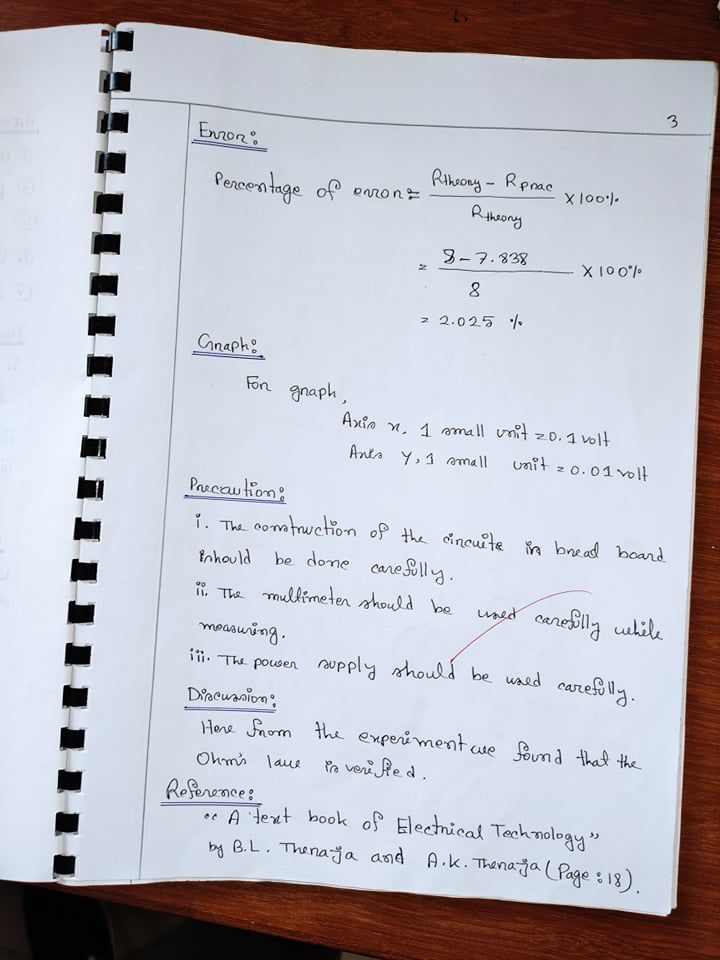 3
Error:
Percentage of error = (Rtheory - Rprac) / Rtheory × 100%
= (8 - 7.838) / 8 × 100%
= 2.025 %
Graph:
For graph,
Axis x, 1 small unit = 0.1 volt
Axis y, 1 small unit = 0.01 volt
Precaution:
i. The construction of the circuits in bread board
should be done carefully.
ii. The multimeter should be used carefully while
measuring.
iii. The power supply should be used carefully.
Discussion:
Here from the experiment we found that the
Ohm's law is verified.
Reference:
"A text book of Electrical Technology"
by B.L. Theraja and A.K. Theraja (Page: 18).